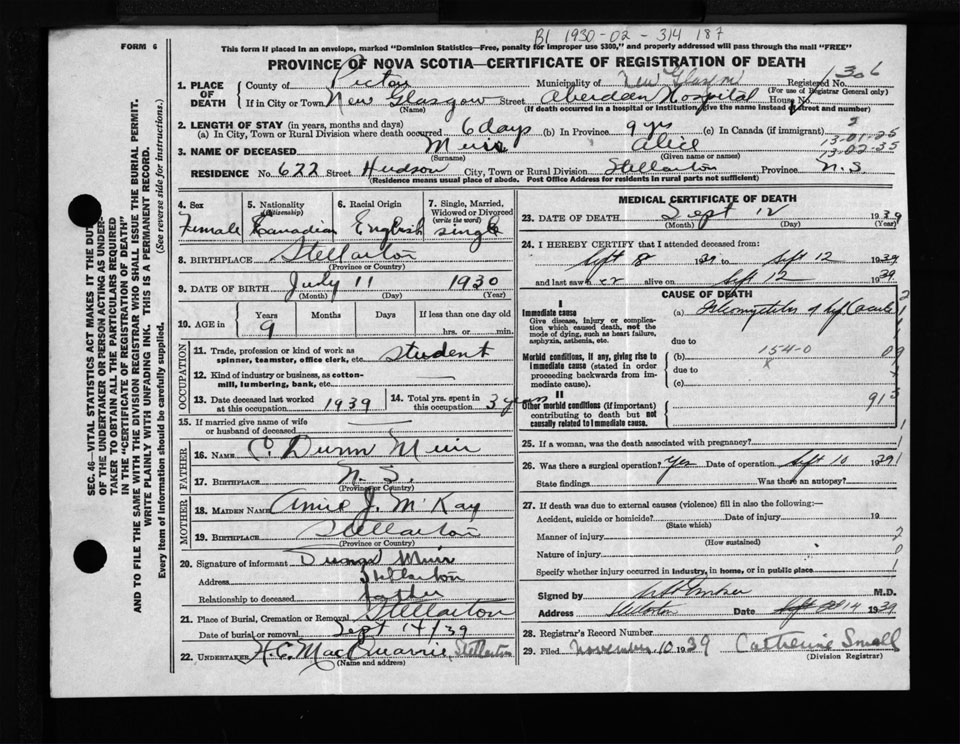 B1 1930-02-314 187
FORM 6
This form if placed in an envelope, marked "Dominion Statistics—Free, penalty for improper use $300," and properly addressed will pass through the mail "FREE"
PROVINCE OF NOVA SCOTIA—CERTIFICATE OF REGISTRATION OF DEATH
1. PLACE OF DEATH
County of Pictou Municipality of New Glasgow Registered No. 306
(For use of Registrar General only)
If in City or Town New Glasgow Street Aberdeen Hospital House No.
(If death occurred in a hospital or institution, give the name instead of street and number)
2. LENGTH OF STAY (in years, months and days)
(a) In City, Town or Rural Division where death occurred 6 days (b) In Province 9 yrs (c) In Canada (if immigrant)
13-01-25
13-02-35
3. NAME OF DECEASED Muir Alice
(Surname) (Given name or names)
RESIDENCE No. 622 Street Hudson City, Town or Rural Division Stellarton Province N.S
(Residence means usual place of abode. Post Office Address for residents in rural parts not sufficient)
4. Sex Female
5. Nationality (Citizenship) Canadian
6. Racial Origin English
7. Single, Married, Widowed or Divorced (write the word) single
8. BIRTHPLACE Stellarton
(Province or Country)
9. DATE OF BIRTH July 11 1930
(Month) (Day) (Year)
10. AGE in Years Months Days If less than one day old
9 hrs. or min.
OCCUPATION
11. Trade, profession or kind of work as spinner, teamster, office clerk, etc. student
12. Kind of industry or business, as cotton-mill, lumbering, bank, etc. —
13. Date deceased last worked at this occupation 1939
14. Total yrs. spent in this occupation 3 years
15. If married give name of wife or husband of deceased —
FATHER
16. NAME C. Dunn Muir
17. BIRTHPLACE N. S.
(Province or Country)
MOTHER
18. MAIDEN NAME Annie J. McKay
19. BIRTHPLACE Stellarton
(Province or Country)
20. Signature of informant Dunn Muir
Address Stellarton
Relationship to deceased father
21. Place of Burial, Cremation or Removal Stellarton
Date of burial or removal Sept 14/39
22. UNDERTAKER H. C. MacQuarrie Stellarton
(Name and address)
MEDICAL CERTIFICATE OF DEATH
23. DATE OF DEATH Sept 12 1939
(Month) (Day) (Year)
24. I HEREBY CERTIFY that I attended deceased from:
Sept 8 1939 to Sept 12 1939
and last saw her alive on Sept 12 1939
CAUSE OF DEATH
I
Immediate cause
Give disease, injury or complication which caused death, not the mode of dying, such as heart failure, asphyxia, asthenia, etc.
(a) Osteomyelitis of hip (acute)
due to
Morbid conditions, if any, giving rise to immediate cause (stated in order proceeding backwards from immediate cause).
(b) 154-0
due to
(c)
II
Other morbid conditions (if important) contributing to death but not causally related to immediate cause.
25. If a woman, was the death associated with pregnancy?
26. Was there a surgical operation? Yes Date of operation Sept 10 1939
State findings Was there an autopsy?
27. If death was due to external causes (violence) fill in also the following:—
Accident, suicide or homicide? Date of injury 19
(State which)
Manner of injury
(How sustained)
Nature of injury
Specify whether injury occurred in industry, in home, or in public place
Signed by M.D.
Address Stellarton Date Sept 14 1939
28. Registrar's Record Number
29. Filed November 10 1939 Catherine Small
(Division Registrar)
SEC. 46—VITAL STATISTICS ACT MAKES IT THE DUTY OF THE UNDERTAKER OR PERSON ACTING AS UNDERTAKER TO OBTAIN ALL THE PARTICULARS REQUIRED IN THE "CERTIFICATE OF REGISTRATION OF DEATH" AND TO FILE THE SAME WITH THE DIVISION REGISTRAR WHO SHALL ISSUE THE BURIAL PERMIT.
WRITE PLAINLY WITH UNFADING INK. THIS IS A PERMANENT RECORD.
Every item of Information should be carefully supplied. (See reverse side for instructions.)